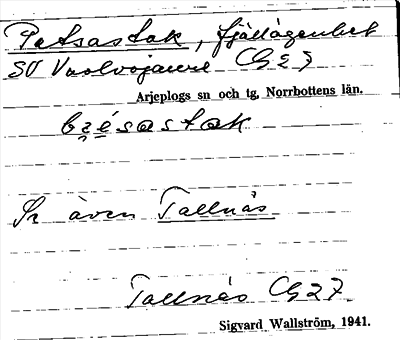 Patsastak, fjällägenhet
SV Vuolvojaure Cg 27
Arjeplogs sn och tg, Norrbottens län.
bzésastak
Se även Tallnäs
Tallnäs Cg 27
Sigvard Wallström, 1941.